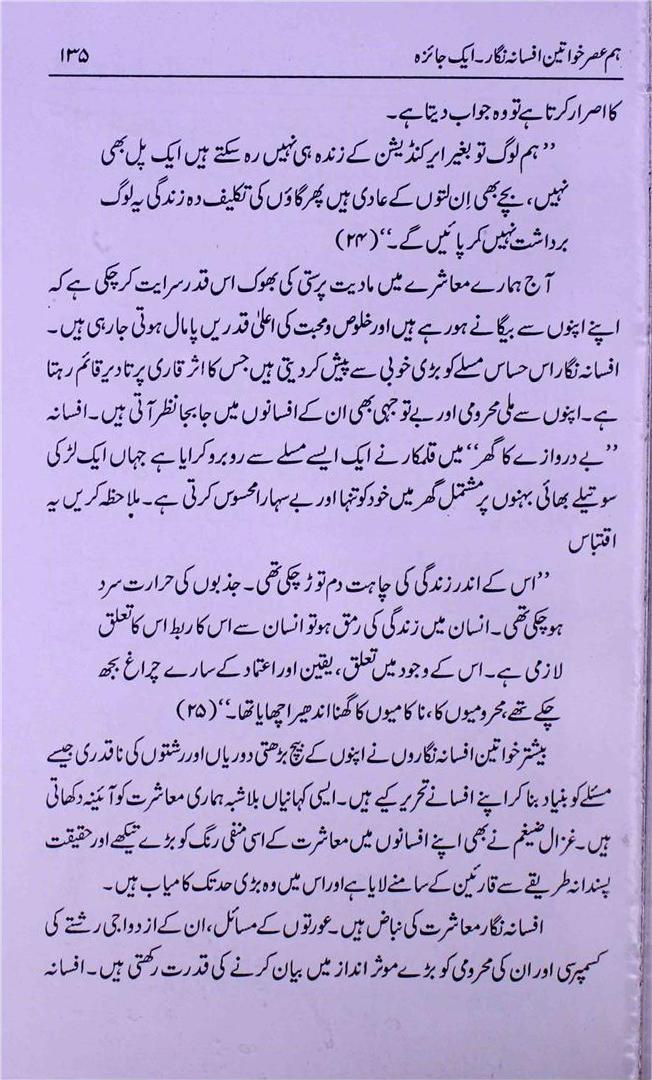 ہم عصر خواتین افسانہ نگار۔ ایک جائزہ ۱۳۵
کا اصرار کرتا ہے تو وہ جواب دیتا ہے۔
’’ہم لوگ تو بغیر ایرکنڈیشن کے زندہ ہی نہیں رہ سکتے ہیں ایک پل بھی
نہیں، بچے بھی اِن لتوں کے عادی ہیں پھر گاؤں کی تکلیف دہ زندگی یہ لوگ
برداشت نہیں کر پائیں گے۔‘‘ (۲۴)
آج ہمارے معاشرے میں مادیت پرستی کی بھوک اس قدر سرایت کر چکی ہے کہ
اپنے اپنوں سے بیگانے ہو رہے ہیں اور خلوص و محبت کی اعلیٰ قدریں پامال ہوتی جا رہی ہیں۔
افسانہ نگار اس حساس مسلے کو بڑی خوبی سے پیش کر دیتی ہیں جس کا اثر قاری پر تا دیر قائم رہتا
ہے۔ اپنوں سے ملی محرومی اور بے توجہی بھی ان کے افسانوں میں جا بجا نظر آتی ہیں۔ افسانہ
’’بے دروازے کا گھر‘‘ میں قلمکار نے ایک ایسے مسلے سے روبرو کرایا ہے جہاں ایک لڑکی
سوتیلے بھائی بہنوں پر مشتمل گھر میں خود کو تنہا اور بے سہارا محسوس کرتی ہے۔ ملاحظہ کریں یہ
اقتباس
’’اس کے اندر زندگی کی چاہت دم توڑ چکی تھی۔ جذبوں کی حرارت سرد
ہو چکی تھی۔ انسان میں زندگی کی رمق ہو تو انسان سے اس کا ربط اس کا تعلق
لازمی ہے۔ اس کے وجود میں تعلق، یقین اور اعتماد کے سارے چراغ بجھ
چکے تھے، محرومیوں کا، ناکامیوں کا گھنا اندھیرا چھایا تھا۔‘‘ (۲۵)
بیشتر خواتین افسانہ نگاروں نے اپنوں کے بیچ بڑھتی دوریاں اور رشتوں کی ناقدری جیسے
مسئلے کو بنیاد بنا کر اپنے افسانے تحریر کیے ہیں۔ ایسی کہانیاں بلاشبہ ہماری معاشرت کو آئینہ دکھاتی
ہیں۔ غزال ضیغم نے بھی اپنے افسانوں میں معاشرت کے اسی منفی رنگ کو بڑے تیکھے اور حقیقت
پسندانہ طریقے سے قارئین کے سامنے لایا ہے اور اس میں وہ بڑی حد تک کامیاب ہیں۔
افسانہ نگار معاشرت کی نباض ہیں۔ عورتوں کے مسائل، ان کے ازدواجی رشتے کی
کسمپرسی اور ان کی محرومی کو بڑے موثر انداز میں بیان کرنے کی قدرت رکھتی ہیں۔ افسانہ